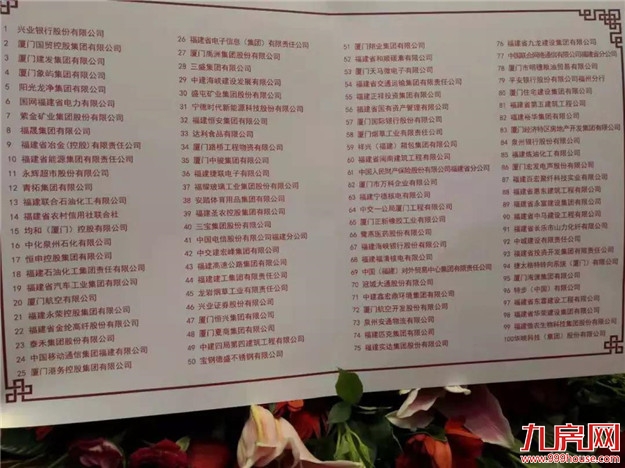 1 兴业银行股份有限公司
2 厦门国贸控股集团有限公司
3 厦门建发集团有限公司
4 厦门象屿集团有限公司
5 阳光龙净集团有限公司
6 国网福建省电力有限公司
7 紫金矿业集团股份有限公司
8 福晟集团有限公司
9 福建省冶金（控股）有限责任公司
10 福建省能源集团有限责任公司
11 永辉超市股份有限公司
12 青拓集团有限公司
13 福建联合石油化工有限公司
14 福建省农村信用社联合社
15 均和（厦门）控股有限公司
16 中化泉州石化有限公司
17 恒申控股集团有限公司
18 福建石油化工集团有限责任公司
19 福建省汽车工业集团有限公司
20 厦门航空有限公司
21 福建永荣控股集团有限公司
22 福建省金纶高纤股份有限公司
23 泰禾集团股份有限公司
24 中国移动通信集团福建有限公司
25 厦门港务控股集团有限公司
26 福建省电子信息（集团）有限责任公司
27 厦门禹洲集团股份有限公司
28 三盛集团有限公司
29 中建海峡建设发展有限公司
30 盛屯矿业集团股份有限公司
31 宁德时代新能源科技股份有限公司
32 福建恒安集团有限公司
33 达利食品有限公司
34 厦门路桥工程物资有限公司
35 厦门中骏集团有限公司
36 福建捷联电子有限公司
37 福耀玻璃工业集团股份有限公司
38 安踏体育用品集团有限公司
39 福建圣农控股集团有限公司
40 三宝集团股份有限公司
41 中国电信股份有限公司福建分公司
42 中交建宏峰集团有限公司
43 福建高速公路集团有限公司
44 福建建工集团有限责任公司
45 龙岩烟草工业有限责任公司
46 兴业证券股份有限公司
47 厦门恒兴集团有限公司
48 厦门夏商集团有限公司
49 中建四局第四建筑工程有限公司
50 宝钢德盛不锈钢有限公司
51 厦门翔业集团有限公司
52 福建省和顺碳素有限公司
53 厦门天马微电子有限公司
54 福建省交通运输集团有限责任公司
55 福建正祥投资集团有限公司
56 福建省国有资产管理有限公司
57 厦门国际银行股份有限公司
58 厦门烟草工业有限责任公司
59 祥兴（福建）箱包集团有限公司
60 福建省闽南建筑工程有限公司
61 中国人民财产保险股份有限公司福建省分公司
62 厦门市万科企业有限公司
63 福建宁德核电有限公司
64 中交一公局厦门工程有限公司
65 厦门正新橡胶工业有限公司
66 鹭燕医药股份有限公司
67 福建海峡银行股份有限公司
68 福建福清核电有限公司
69 中国（福建）对外贸易中心集团有限责任公司
70 冠城大通股份有限公司
71 中建鑫宏鼎环境集团有限公司
72 厦门航空开发股份有限公司
73 泉州安通物流有限公司
74 福建匹克集团有限公司
75 福建实达集团股份有限公司
76 福建省九龙建设集团有限公司
77 中国联合网络通信有限公司福建省分公司
78 厦门市明穗粮油贸易有限公司
79 平安银行股份有限公司福州分行
80 厦门住宅建设集团有限公司
81 福建省第五建筑工程公司
82 福建裕华集团有限公司
83 厦门经济特区房地产开发集团有限公司
84 泉州银行股份有限公司
85 福建炼油化工有限公司
86 厦门宏发电声股份有限公司
87 福建百宏聚纤科技实业有限公司
88 福建省惠东建筑工程有限公司
89 福建省永富建设集团有限公司
90 福建省中马建设工程有限公司
91 福建省长乐市山力化纤有限公司
92 中城建设有限责任公司
93 福建省投资开发集团有限责任公司
94 捷太格特转向系统（厦门）有限公司
95 厦门海澳集团有限公司
96 特步（中国）有限公司
97 福建省东霖建设工程有限公司
98 福建省华荣建设集团有限公司
99 福建傲农生物科技集团股份有限公司
100 华映科技（集团）股份有限公司
九房网
www.999house.com